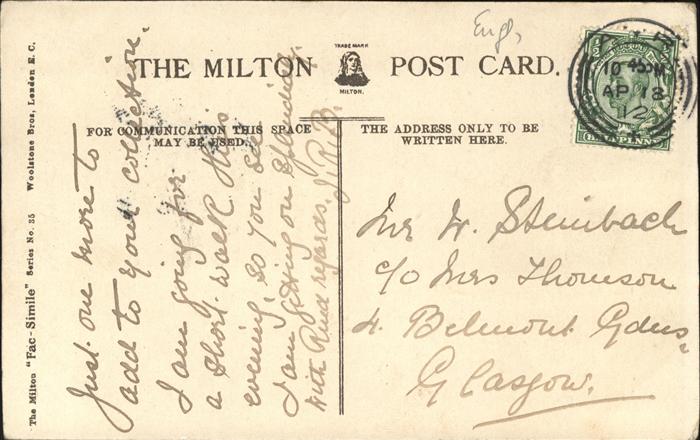 Engl,
THE MILTON POST CARD.
TRADE MARK
MILTON.
10 45 PM
AP 18
12
HALFPENNY
FOR COMMUNICATION THIS SPACE
MAY BE USED.
THE ADDRESS ONLY TO BE
WRITTEN HERE.
The Milton "Fac-Simile" Series No. 35 Woolstone Bros, London E.C.
Just one more to
add to your collection.
I am going for
a short walk this
evening, so you see
I am getting on splendidly.
With kind regards. J.R.B.
Mr W. Steinbach
c/o Mrs Thomson
4. Belmont Gdns,
Glasgow.